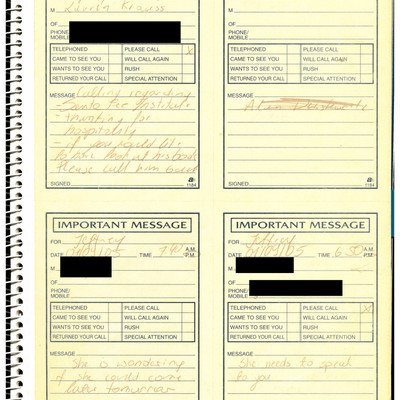 M Lawrence Krauss
OF
PHONE/
MOBILE
TELEPHONED PLEASE CALL X
CAME TO SEE YOU WILL CALL AGAIN
WANTS TO SEE YOU RUSH
RETURNED YOUR CALL SPECIAL ATTENTION
MESSAGE Calling regarding
- Santa Fee Institute
- thanking for
hospitality
- if you would like
Please call him back
SIGNED 1184
M
OF
PHONE/
MOBILE
TELEPHONED PLEASE CALL
CAME TO SEE YOU WILL CALL AGAIN
WANTS TO SEE YOU RUSH
RETURNED YOUR CALL SPECIAL ATTENTION
MESSAGE
Alan
SIGNED 1184
IMPORTANT MESSAGE
FOR Jeffrey
DATE TIME 7 40 A.M.
P.M.
M
OF
PHONE/
MOBILE
TELEPHONED PLEASE CALL
CAME TO SEE YOU WILL CALL AGAIN
WANTS TO SEE YOU RUSH
RETURNED YOUR CALL SPECIAL ATTENTION
MESSAGE
She is wondering
if she could come
later tomorrow
IMPORTANT MESSAGE
FOR Jeffrey
DATE TIME 6 50 A.M.
P.M.
M
OF
PHONE/
MOBILE
TELEPHONED PLEASE CALL X
CAME TO SEE YOU WILL CALL AGAIN
WANTS TO SEE YOU RUSH
RETURNED YOUR CALL SPECIAL ATTENTION
MESSAGE
She needs to speak
to you